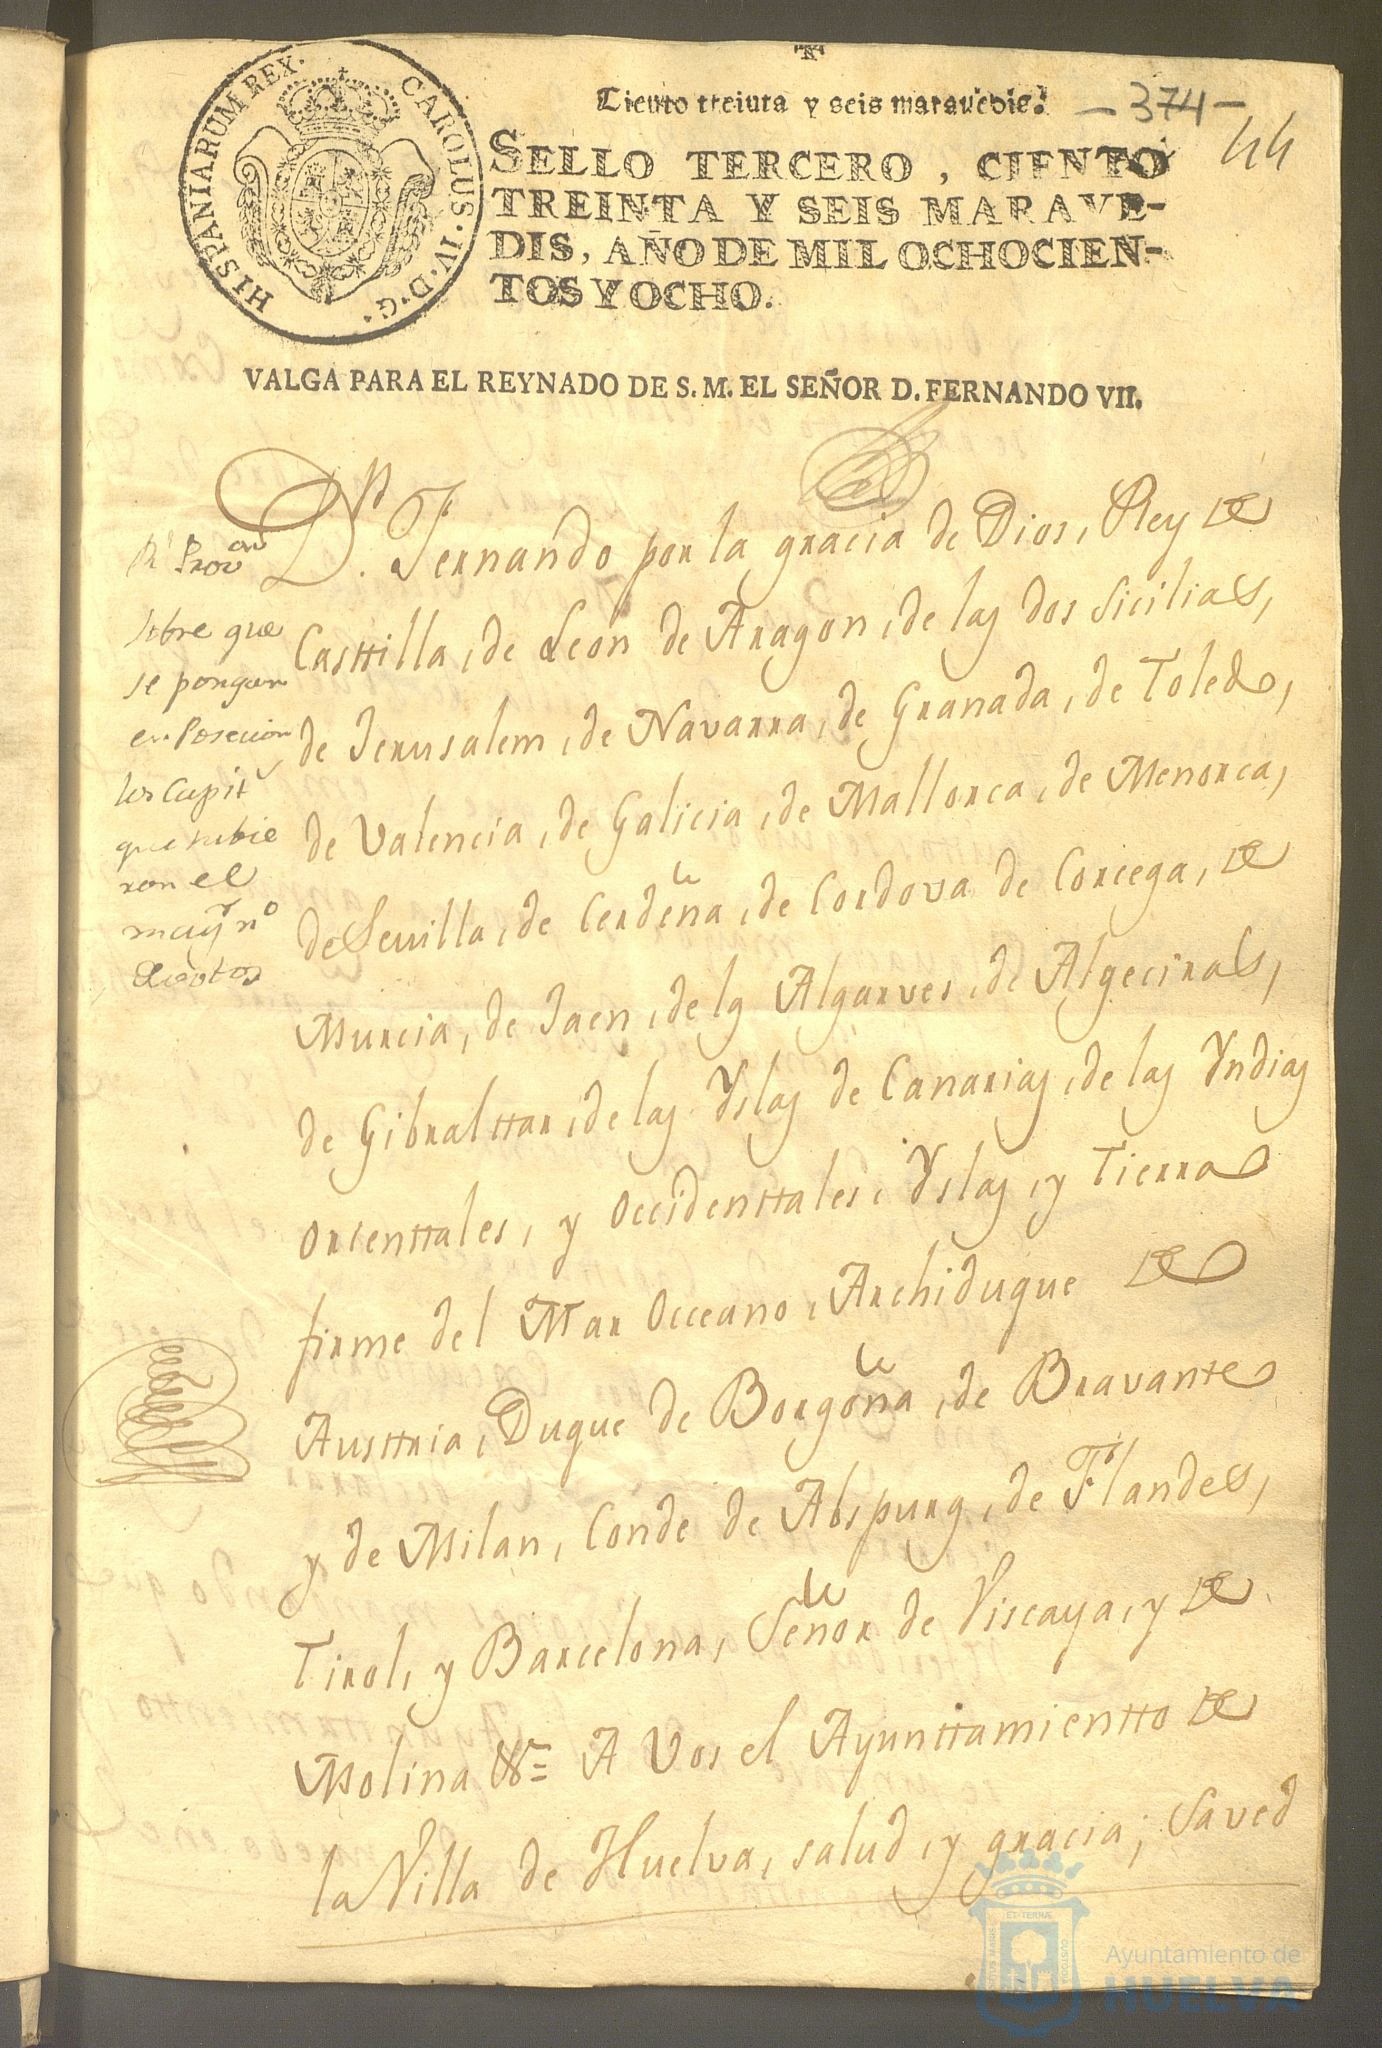 HISPANIARUM REX. CAROLUS. IV. D. G.
Ciento treinta y seis maravedis.
- 374 -
44
SELLO TERCERO, CIENTO
TREINTA Y SEIS MARAVE-
DIS, AÑO DE MIL OCHOCIEN-
TOS Y OCHO.
VALGA PARA EL REYNADO DE S. M. EL SEÑOR D. FERNANDO VII.
Rl Provon
sobre que
se pongan
en Posecion
los Capits
que tubie
ron el
mayr no
de votos
Dn. Fernando por la gracia de Dios, Rey de
Casttilla, de Leon de Aragon, de las dos Sicilias,
de Jerusalem, de Navarra, de Granada, de Toledo,
de Valencia, de Galicia, de Mallorca, de Menorca,
de Sevilla, de Cerdeña, de Cordova de Corcega, de
Murcia, de Jaen, de ls Algarves, de Algeciras,
de Gibralttar, de las Yslas de Canarias, de las Yndias
Orienttales, y Occidenttales, Yslas, y Tierra
firme del Mar Occeano, Archiduque de
Austtria, Duque de Borgoña, de Bravante
y de Milan, Conde de Abspurg, de Flandes,
Tirol, y Barcelona, Señor de Viscaya, y de
Molina &a= A Vos el Ayunttamientto de
la Villa de Huelva, salud, y gracia; Saved
Ayuntamiento de
HUELVA